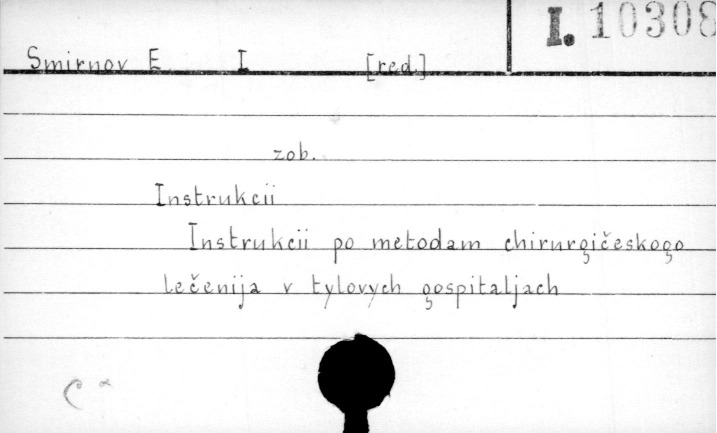 I. 10308
Smirnov E I [red.]
zob.
Instrukcii
Instrukcii po metodam chirurgičeskogo
lečenija v tylovych gospitaljach